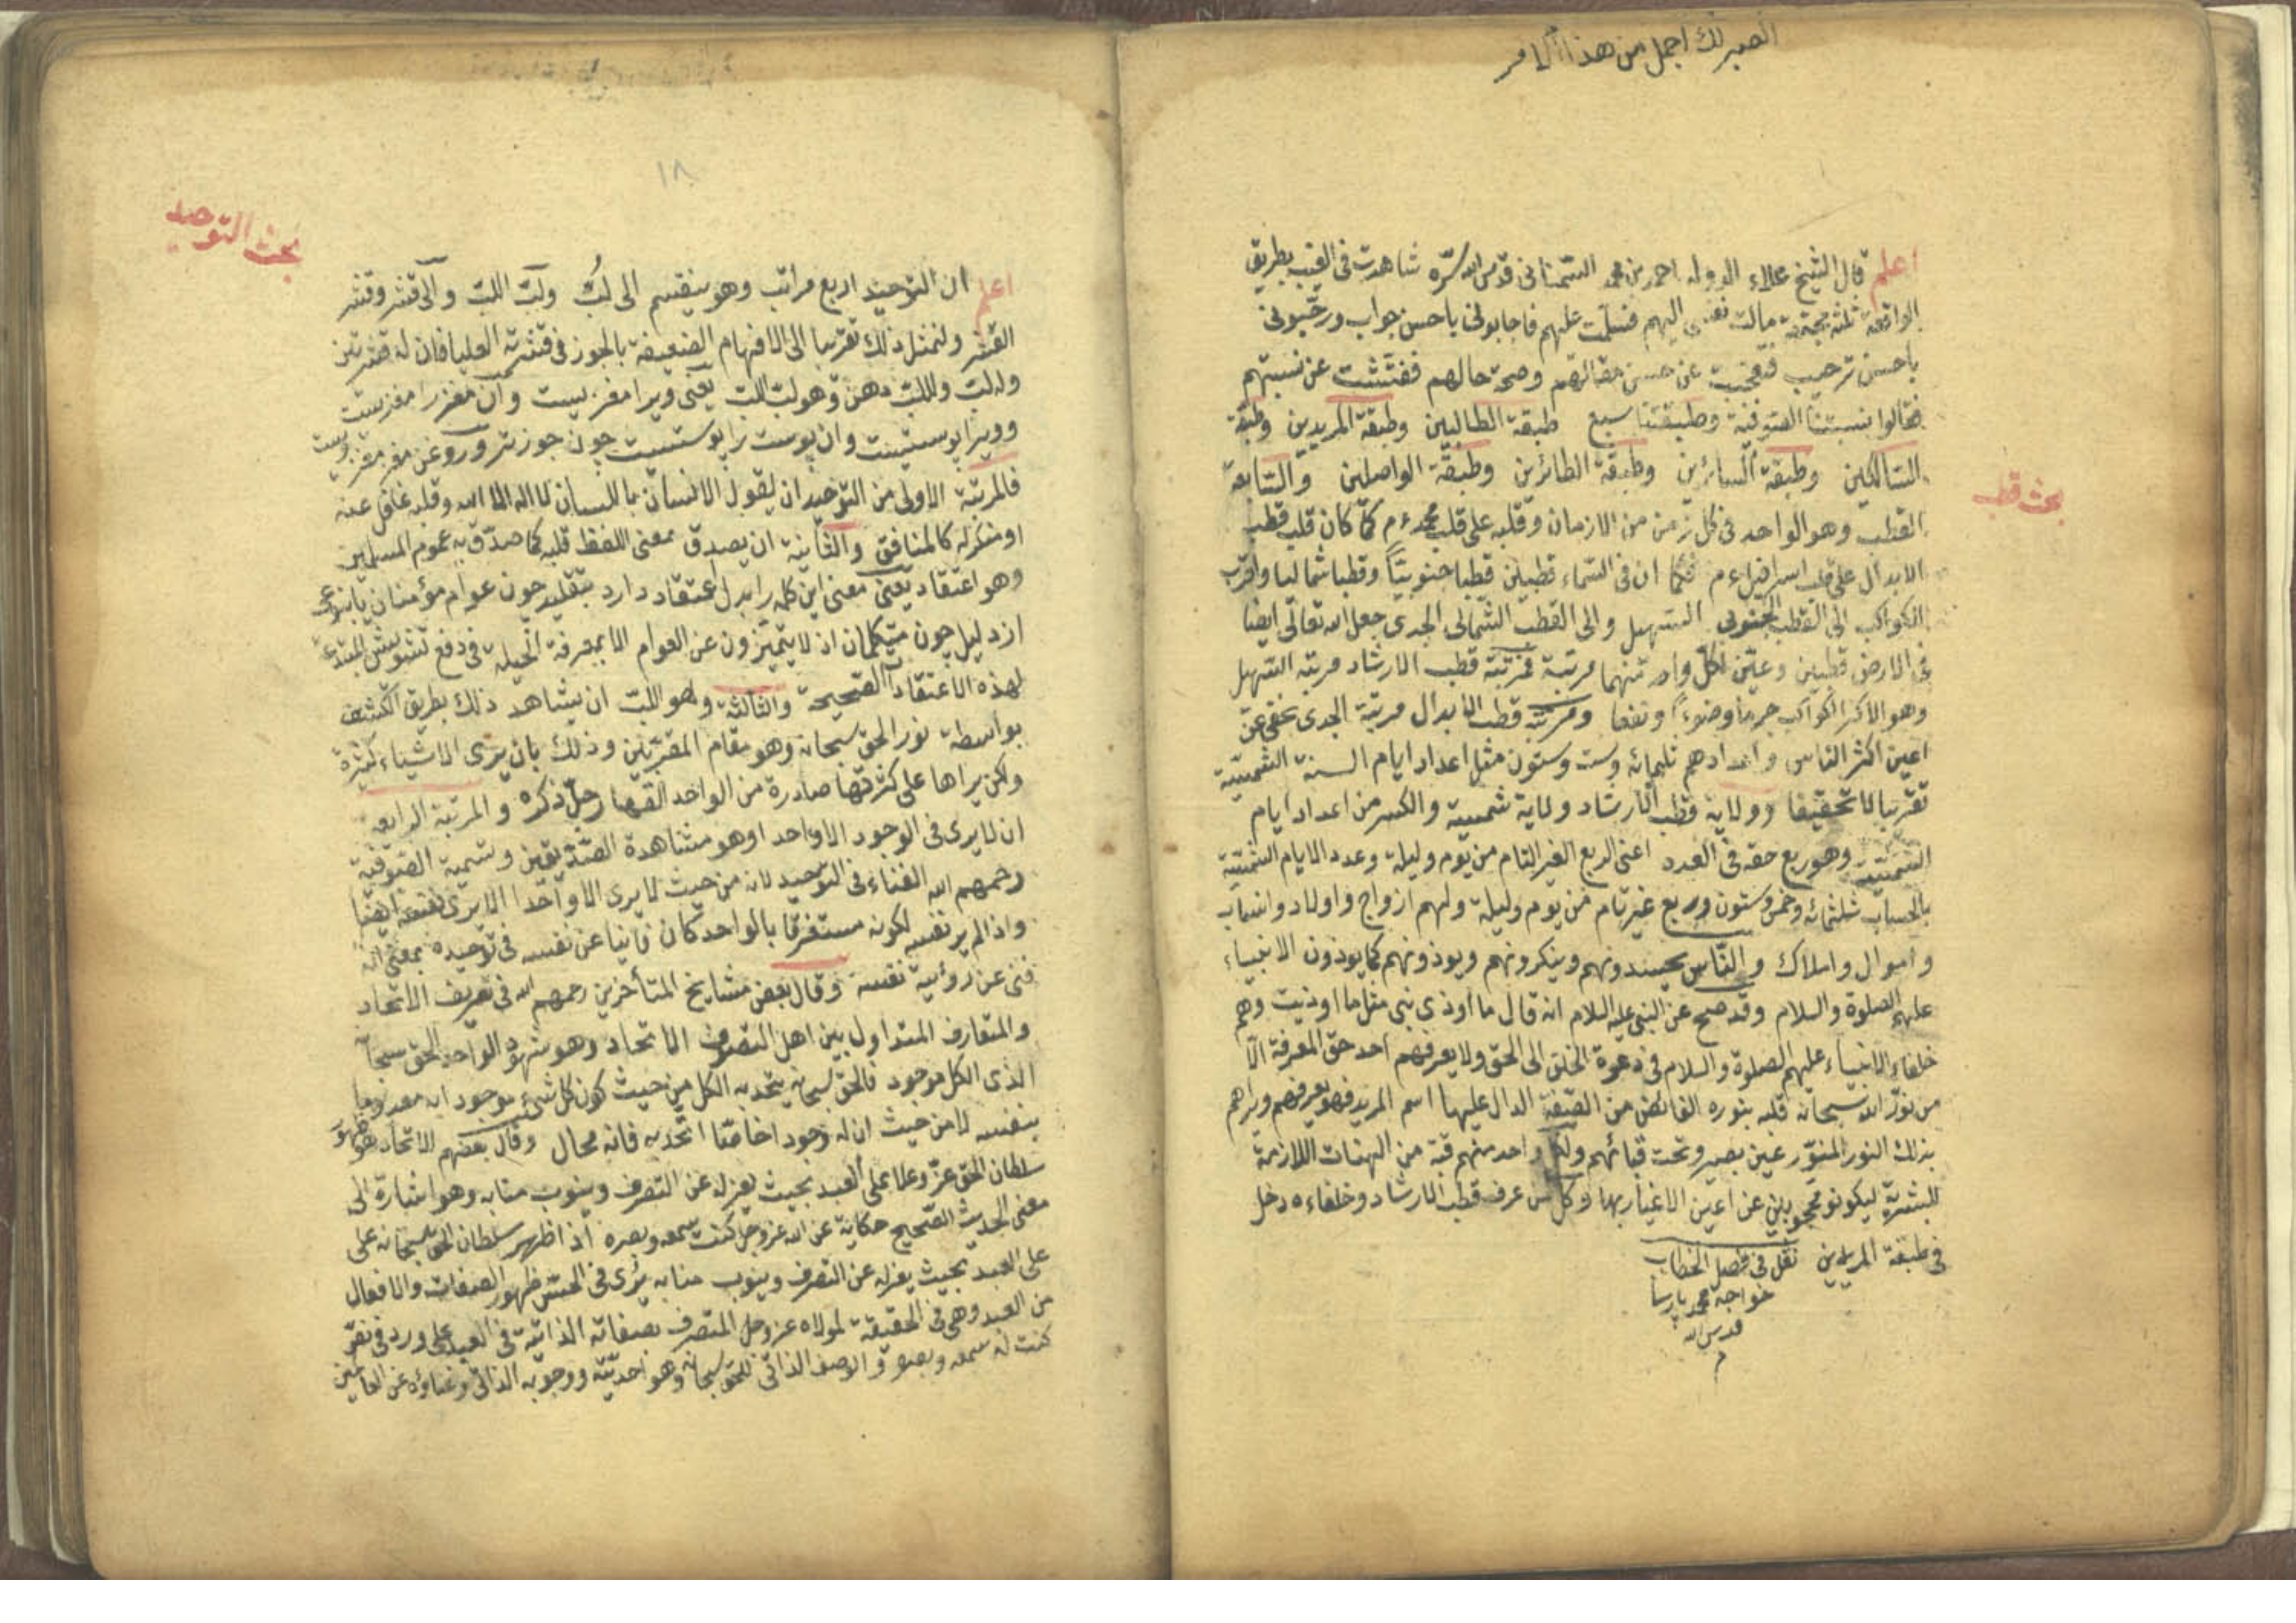 الصبر لك اجمل من هذا الامر
بحث قطب
اعلم قال الشيخ علاء الدولة احمد بن محمد السمنانى قدس الله سره شاهدت فى الغيب بطريق
الواقعة ثلثة مجتمعة مالت نفسى اليهم فسلمت عليهم فاجابونى باحسن جواب ورحبونى
باحسن ترحيب فتعجبت عن حسن مقالتهم وصحة حالهم ففتشت عن نسبتهم
فقالوا نسبتنا الصوفية وطبقتنا سبع طبقة الطالبين وطبقة المريدين وطبقة
السالكين وطبقة السائرين وطبقة الطائرين وطبقة الواصلين والسابعة
القطب وهو الواحد فى كل زمن من الازمان وقلبه على قلب محمد ءم كما كان قلب قطب
الابدال على قلب اسرافيل ءم فكما ان فى السماء قطبين قطبا جنوبيا وقطبا شماليا واقرب
الكواكب الى القطب الجنوبى السهيل والى القطب الشمالى الجدى جعل الله تعالى ايضا
فى الارض قطبين وعين لكل واحد منهما مرتبة فمرتبة قطب الارشاد مرتبة السهيل
وهو الاكبر الكواكب جرما وضوءا ونفعا ومرتبة قطب الابدال مرتبة الجدى يخفى عن
اعين اكثر الناس واعدادهم ثلثمائه وست وستون مثل اعداد ايام السنة الشمسية
تقريبا لا تحقيقا وولاية قطب الارشاد ولاية شمسية والكسر من اعداد ايام
الشمسية وهو ربع حقه فى العدد اعنى الربع الغير التام من يوم وليلة وعدد الايام الشمسية
بالحساب ثلثمائه وخمس وستون وربع غير تام من يوم وليلة ولهم ازواج واولاد واسباب
واموال واملاك والناس يحسدونهم وينكرونهم ويوذونهم كما يوذون الانبياء
عليهم الصلوة والسلام وقد صح عن النبى عليه السلام انه قال ما اوذى نبى مثل ما اوذيت وهم
خلفاء الانبياء عليهم الصلوة والسلام فى دعوة الخلق الى الحق ولا يعرفهم احد حق المعرفة الا
من نور الله سبحانه قلبه بنوره الفائض من الصفة الدال عليها اسم المريد فهو يعرفهم ويراهم
بذلك النور المنور عين بصير وتحت قبائهم ولكل واحد منهم قبة من الهنات اللازمة
للبشرية ليكونو محجوبين عن اعين الاغيار بها وكل من عرف قطب الارشاد وخلفاءه دخل
فى طبقة المريدين نقل فى فصل الخطاب
خواجه محمد پارسا
قدس الله
م
١٨
بحث التوحيد
اعلم ان التوحيد اربع مراتب وهو ينقسم الى لب ولب اللب والى قشر وقشر
القشر ولنمثل ذلك تقريبا الى الافهام الضعيفة بالجوز فى قشرته العليا فان له قشرتين
وله لب وللب دهن وهو لب اللب يعنى ويرا مغزيست وآن مغز را مغزيست
وويرا پوستيست وان پوست را پوستيست چون جوز تر وروغن مغز مغز ويست
فالمرتبة الاولى من التوحيد ان يقول الانسان باللسان لا اله الا الله وقلبه غافل عنه
او منكر له كالمنافق والثانية ان يصدق بمعنى اللفظ قلبه كما صدق به عموم المسلمين
وهو اعتقاد يعنى معنى اين كلمه را بدل اعتقاد دارد بتقليد چون عوام مؤمنان يا بنوعى
از دليل چون متكلمان اذ لا يتميزون عن العوام الا بمعرفة الحيلة فى دفع تشويش المبتدعة
لهذه الاعتقاد الصحيحة والثالثة وهو اللب ان يشاهد ذلك بطريق الكشف
بواسطة نور الحق سبحانه وهو مقام المقربين وذلك بان يرى الاشياء كثيرة
ولكن يراها على كثرتها صادرة من الواحد القهار جل ذكره والمرتبة الرابعه
ان لا يرى فى الوجود الا واحدا وهو مشاهدة الصديقين وتسمية الصوفية
رحمهم الله الفناء فى التوحيد لانه من حيث لا يرى الا واحدا لا يرى نفسه ايضا
واذا لم ير نفسه لكونه مستغرقا بالواحد كان فانيا عن نفسه فى توحيده بمعنى انه
فنى عن رؤية نفسه وقال بعض مشايخ المتأخرين رحمهم الله فى تعريف الاتحاد
والمتعارف المتداول بين اهل التصوف الاتحاد وهو شهود الواحد الحق سبحانه
الذى الكل موجود فالحق سبحانه يتحد به الكل من حيث كون كل شئ موجود ابه معدوما
بنفسه لا من حيث ان له وجودا خاصا اتحد به فانه محال وقال بعضهم الاتحاد هو ظهور
سلطان الحق عز وعلا على العبد بحيث يعزله عن التصرف وينوب منابه وهو اشارة الى
معنى الحديث الصحيح حكاية عن الله عز وجل كنت سمعه وبصره اذ اظهر سلطان الحق سبحانه على
على العبد بحيث يعزله عن التصرف وينوب منابه يرى فى الحس ظهور الصفات والافعال
من العبد وهى فى الحقيقة لمولاه عز وجل المتصرف بصفاته الذاتية فى العبد على ورد فى نص
كنت له سمعه وبصره والوصف الذاتى للحق سبحانه وهو احديته ووجوبه الذاتى وغناؤه عن العالمين